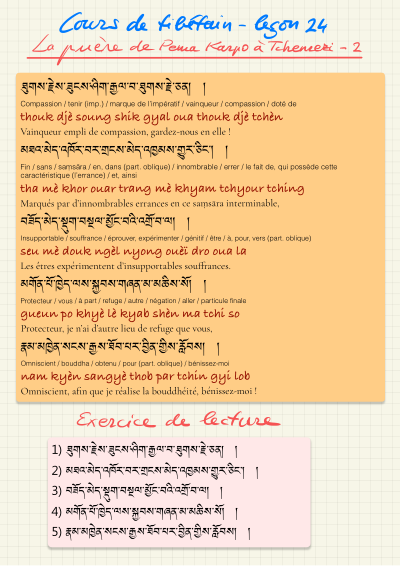 Cours de tibétain - leçon 24
La prière de Pema Karpo à Tchenrezi - 2
ཐུགས་རྗེས་ཟུངས་ཤིག་རྒྱལ་བ་ཐུགས་རྗེ་ཅན། །
Compassion / tenir (imp.) / marque de l'impératif / vainqueur / compassion / doté de
thouk djè soung shik gyal oua thouk djè tchèn
Vainqueur empli de compassion, gardez-nous en elle !
མཐའ་མེད་འཁོར་བར་གྲངས་མེད་འཁྱམས་གྱུར་ཅིང་། །
Fin / sans / saṃsāra / en, dans (part. oblique) / innombrable / errer / le fait de, qui possède cette
caractéristique (l'errance) / et, ainsi
tha mè khor ouar trang mè khyam tchyour tching
Marqués par d'innombrables errances en ce saṃsāra interminable,
བཟོད་མེད་སྡུག་བསྔལ་མྱོང་བའི་འགྲོ་བ་ལ། །
Insupportable / souffrance / éprouver, expérimenter / génitif / être / à, pour, vers (part. oblique)
seu mè douk ngèl nyong ouëi dro oua la
Les êtres expérimentent d'insupportables souffrances.
མགོན་པོ་ཁྱེད་ལས་སྐྱབས་གཞན་མ་མཆིས་སོ། །
Protecteur / vous / à part / refuge / autre / négation / aller / particule finale
gueun po khyè lè kyab shèn ma tchi so
Protecteur, je n'ai d'autre lieu de refuge que vous,
རྣམ་མཁྱེན་སངས་རྒྱས་ཐོབ་པར་བྱིན་གྱིས་རློབས། །
Omniscient / bouddha / obtenu / pour (part. oblique) / bénissez-moi
nam kyèn sangyè thob par tchin gyi lob
Omniscient, afin que je réalise la bouddhéité, bénissez-moi !
Exercice de lecture
1) ཐུགས་རྗེས་ཟུངས་ཤིག་རྒྱལ་བ་ཐུགས་རྗེ་ཅན། །
2) མཐའ་མེད་འཁོར་བར་གྲངས་མེད་འཁྱམས་གྱུར་ཅིང་། །
3) བཟོད་མེད་སྡུག་བསྔལ་མྱོང་བའི་འགྲོ་བ་ལ། །
4) མགོན་པོ་ཁྱེད་ལས་སྐྱབས་གཞན་མ་མཆིས་སོ། །
5) རྣམ་མཁྱེན་སངས་རྒྱས་ཐོབ་པར་བྱིན་གྱིས་རློབས། །